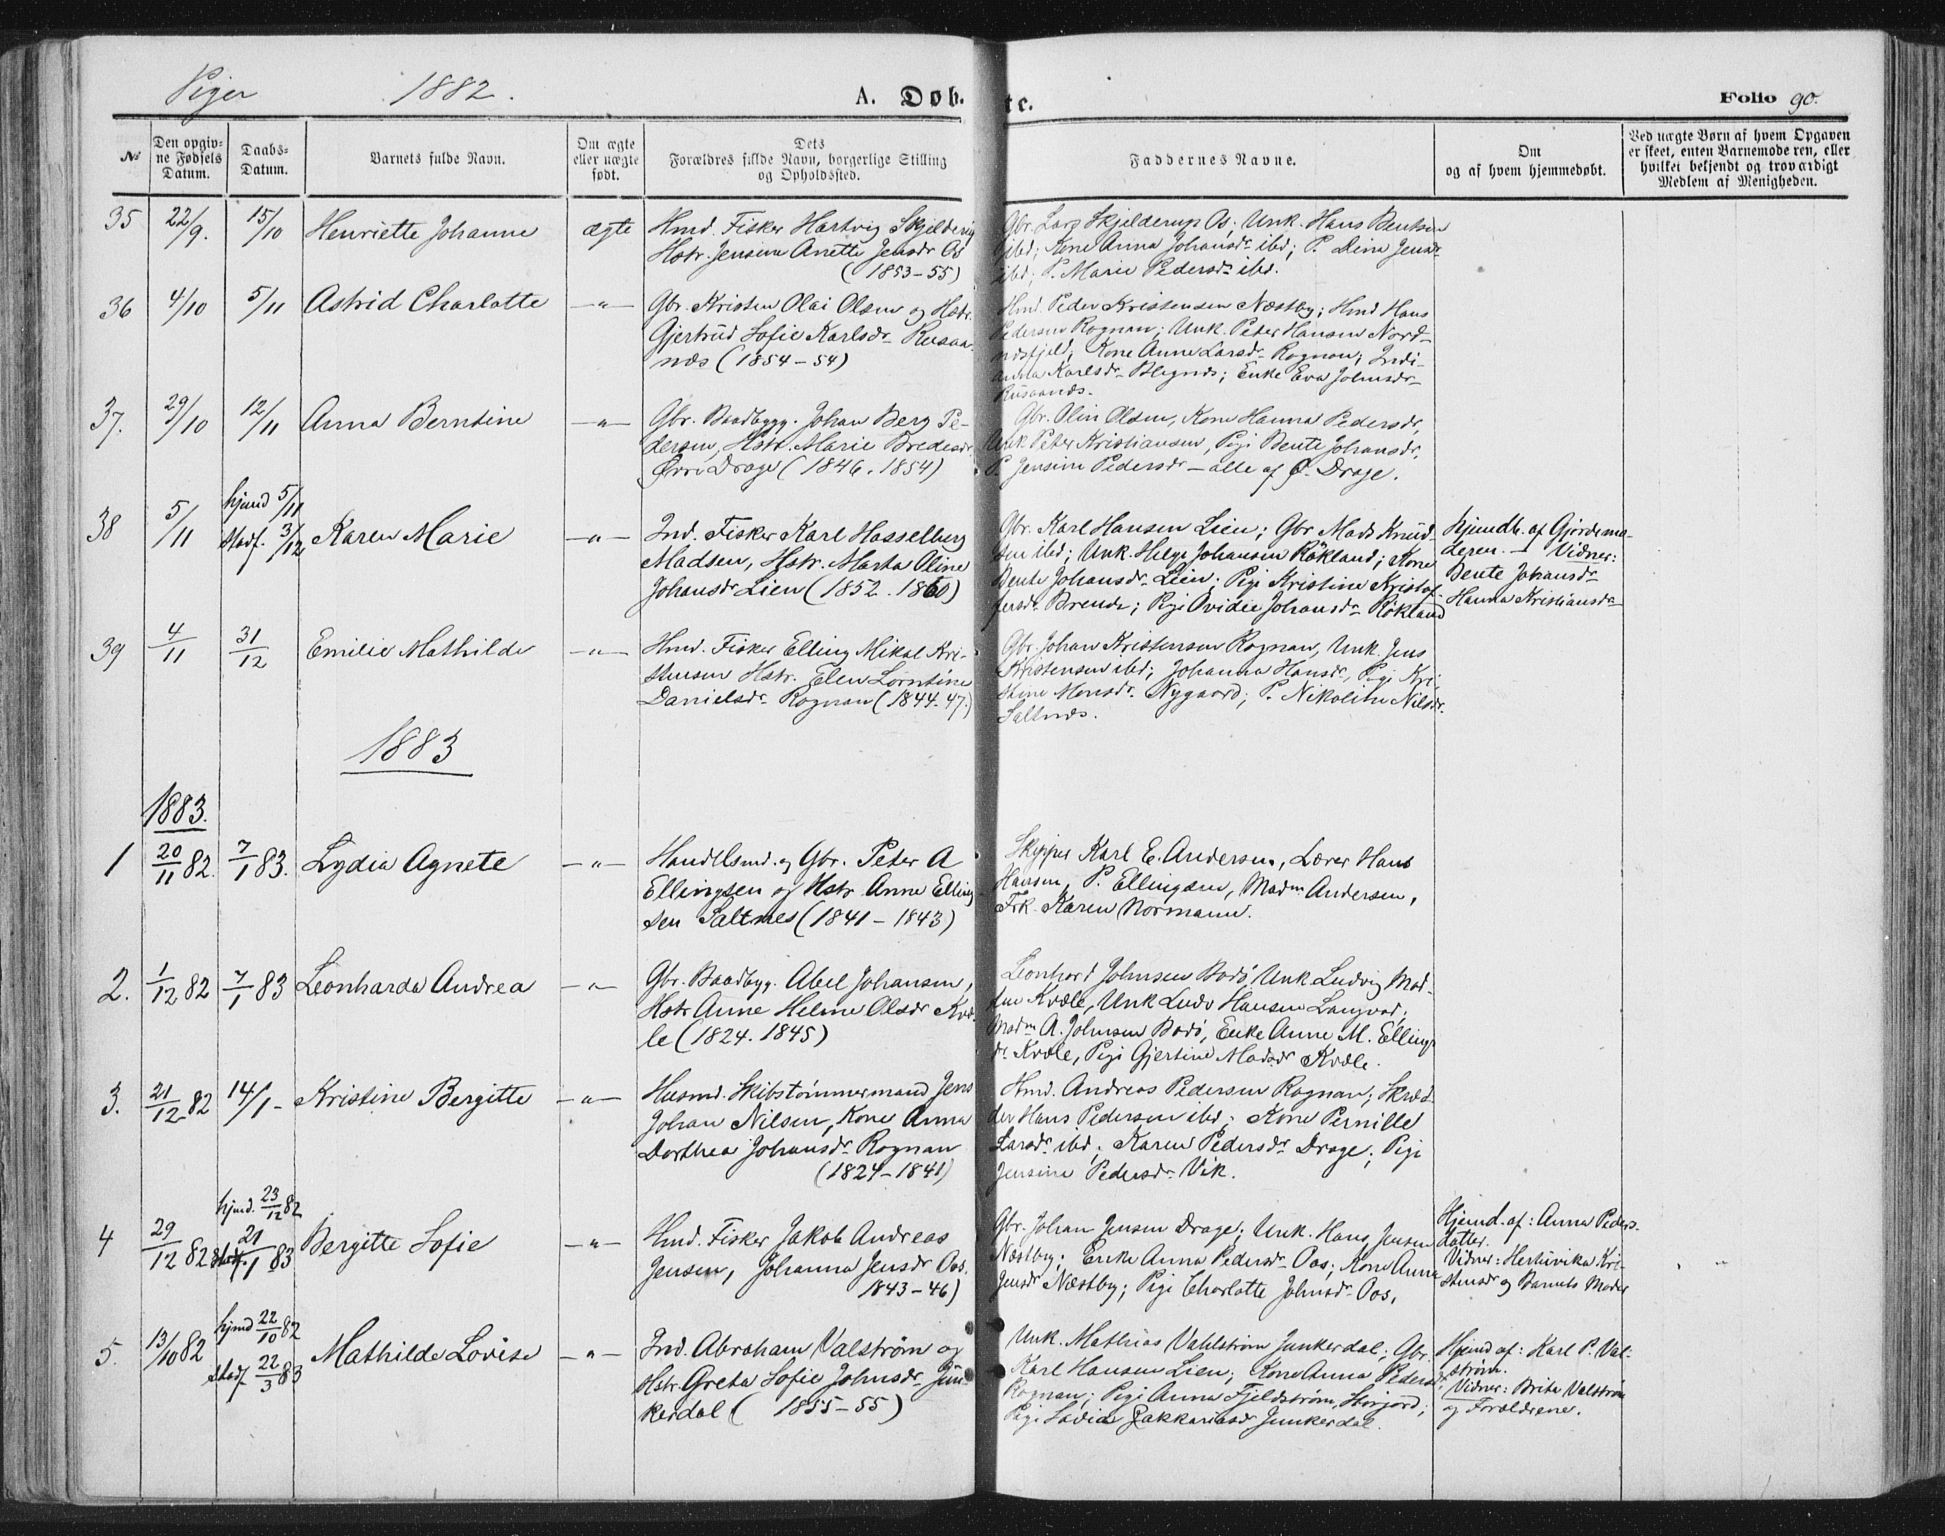 Piger 1882. A. Døb- te. Folio 90.
No
Den opgiv-
ne Fødsels
Datum.
Daabs-
Datum.
Barnets fulde Navn.
Om ægte
eller uægte
født.
Dets
Forældres fulde Navn, borgerlige Stilling
og Opholdssted.
Faddernes Navne.
Om
og af hvem hjemmedøbt.
Ved uægte Børn af hvem Opgaven
er skeet, enten Barnemoderen, eller
hvilket bekjendt og troværdigt
Medlem af Menigheden.
35 22/9. 15/10 Henriette Johanne ægte
Hmd. Fisker Hartvig Skjeldevig
Hstr. Jensine Anette Jensdr Os
(1853-55)
Gbr. Lars Skjelderup Os; Unk. Hans Bentsen
ibd; Kone Anna Johansdr ibd; P. Dina Jensdr
ibd; P. Marie Pedersdr ibd.
36 4/10 5/11 Astrid Charlotte -"-
Gbr. Kristen Olai Olsen og Hstr.
Gjertrud Sofie Karlsdr Rusaa-
nes (1854-54)
Hmd. Peder Kristensen Næstby; Hmd Hans
Pedersen Rognan; Unk. Peter Hansen Nord-
nesfjeld; Kone Anne Larsdr Rognan; Indi-
anna Karlsdr ; Enke Eva Johnsdr
Rusaanes.
37. 29/10 12/11 Anna Berntine -"-
Gbr. Baadbygg. Johan Berg Pe-
dersen, Hstr. Marie Bredesdr
Øvre Drage (1846. 1854)
Gbr. Olin Olsen, Kone Hanna Pedersdr,
Unk. Peter Kristiansen, Pige Bente Johansdr,
P. Jensine Pedersdr - alle af Ø. Drage.
38 5/11 hjmd 5/11
Stadf. 3/12 Karen Marie -"-
Ind. Fisker Karl Hasselberg
Madsen, Hstr. Marta Oline
Johansdr Lien (1852. 1860)
Gbr. Karl Hansen Lien; Gbr Mads Knud-
sen ibd; Unk. Helge Johansen Røkland; Kone
Bente Johansdr Lien; Pige Kristine Kristof-
fersdr Brende; Pige Ovidie Johansdr Røkland
Hjemdb. af Gjordemo-
deren. - Vidner:
Bente Johansdr
Hanna Kristiansdr
39 4/11 31/12 Emilie Mathilde -"-
Hmd. Fisker Elling Mikal Kri-
stensen Hstr. Elen Lorntine
Danielsdr Rognan (1844-47.)
Gbr. Johan Kristensen Rognan, Unk. Jens
Kristensen ibd; Johanna Hansdr, Pige Kri-
stine Monsdr Nygaard; P. Nikoline Nilsdr
Saltnes.
1883
1883.
1 20/11 82. 7/1 83. Lydia Agnete -"-
Handelsmd. og Gbr. Peter A
Ellingsen og Hstr. Anne Elling-
sen Saltnes (1841-1843)
Skipper Karl E. Andersen, Lærer Hans
Hansen, P. Ellingsen, Madm Andersen,
Frk. Karen Normann.
2. 1/12 82 7/1 83 Leonharda Andrea -"-
Gbr. Baadbyg. Abel Johansen,
Hstr Anne Helene Olsdr Kvæ-
le (1824. 1845)
Leonhard Johnsen Bodø, Unk Ludvig Mad-
sen Kvæle, Unk Ludv Hansen Langvad,
Madm A. Johnsen Bodø, Enke Anne M. Ellings-
dr Kvæle, Pige Gjertine Madsdr Kvæle.
3. 21/12 82 14/1 - Kristine Bergitte -"-
Husmd. Skibstømmermand Jens
Johan Nilsen, Kone Anna
Dorthea Johansdr Rognan
(1824-1841)
Hmd. Andreas Pedersen Rognan; Skræd-
der Hans Pedersen ibd; Kone Pernille
Larsdr ibd; Karen Pedersdr Drage; Pige
Jensine Pedersdr Vik.
4 29/12 82 hjmd. 23/12 82
Stadf. 21/1 83 Bergitte Sofie -"-
Hmd. Fisker Jakob Andreas
Jensen, Johanna Jensdr Oos.
1843-46)
Gbr. Johan Jensen Drage; Unk. Hans Jensen
Næstby; Enke Anna Pedersdr Oos; Kone Anna
Jensdr Næstby; Pige Charlotte Johnsdr Oos,
Hjemd. af: Anna Peders-
datter.
Vidner: Hertuvika Kri-
stensdr og Barnets Moder
5. 13/10 82 hjmd 22/10 82
Stadf 22/3 83 Mathilde Lovise -"-
Ind. Abraham Valstrøm og
Hstr. Greta Sofie Johnsdr Jun-
kerdal (1855-55)
Unk. Mathias Vahlstrøm Junkerdal; Gbr.
Karl Hansen Lien; Kone Anna Pedersdr
Rognan; Pige Anna Fjeldstrøm, Storjord;
Pige Lovisa Zakkariasdr Junkerdal.
Hjemd af: Karl P. Val-
strøm.
Vidner: Brita Valstrøm
og Forældrene.